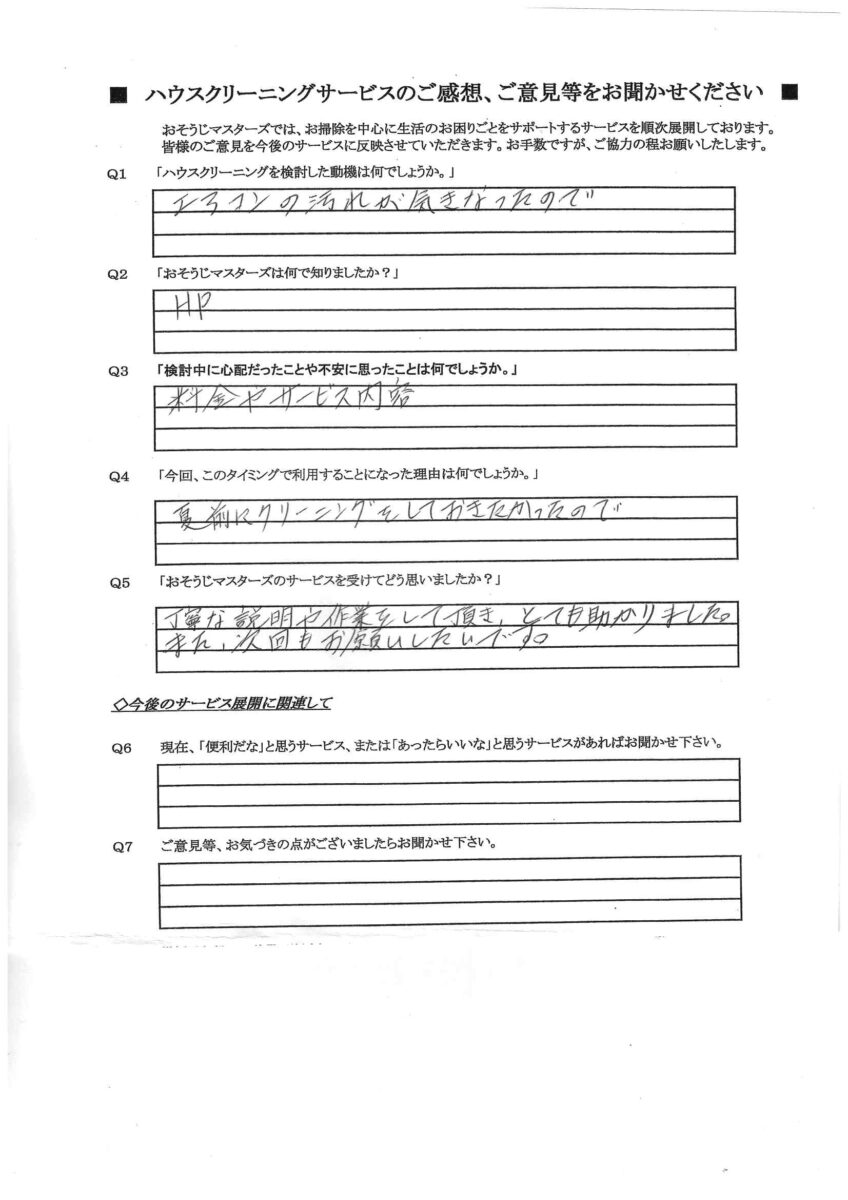 ■ ハウスクリーニングサービスのご感想、ご意見等をお聞かせください ■
おそうじマスターズでは、お掃除を中心に生活のお困りごとをサポートするサービスを順次展開しております。
皆様のご意見を今後のサービスに反映させていただきます。お手数ですが、ご協力の程お願いしたします。
Q1 「ハウスクリーニングを検討した動機は何でしょうか。」
エアコンの汚れが気きなったので
Q2 「おそうじマスターズは何で知りましたか？」
HP
Q3 「検討中に心配だったことや不安に思ったことは何でしょうか。」
料金やサービス内容
Q4 「今回、このタイミングで利用することになった理由は何でしょうか。」
夏前にクリーニングをしておきたかったので
Q5 「おそうじマスターズのサービスを受けてどう思いましたか？」
丁寧な説明や作業をして頂き、とても助かりました。
また、次回もお願いしたいです。
◇今後のサービス展開に関連して
Q6 現在、「便利だな」と思うサービス、または「あったらいいな」と思うサービスがあればお聞かせ下さい。
Q7 ご意見等、お気づきの点がございましたらお聞かせ下さい。